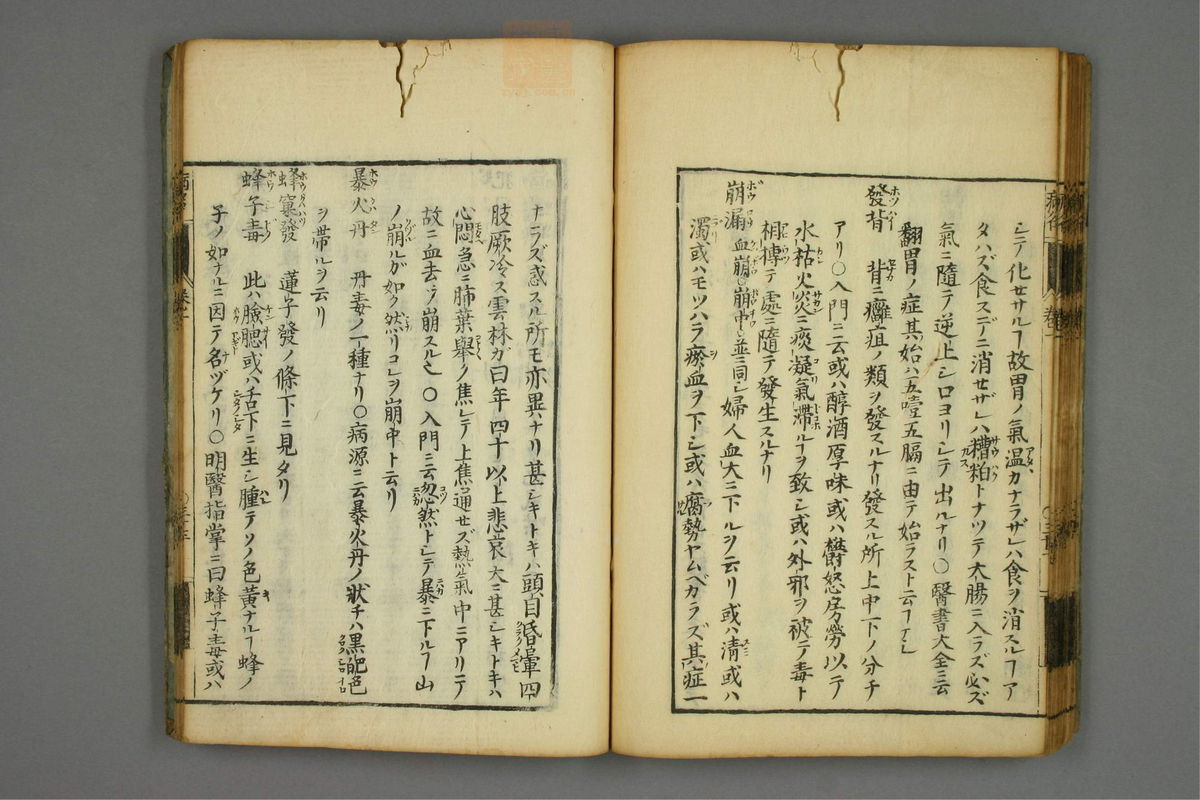 シテ化セサルヿ故胃ノ氣温カナラザレハ食ヲ消スルヿア
タハズ食スデニ消せザレハ糟粕トナツテ大腸ニ入ラズ必ズ
氣ニ隨テ逆上シ口ヨリシテ出ルナリ〇醫書大全ニ云
翻胃ノ症其始ハ五噎五膈ニ由テ始ラスト云ヿナシ
發背 背ニ癰疽ノ類ヲ發スルナリ發スル所上中下ノ分チ
アリ〇入門ニ云或ハ醇酒厚味或ハ欝怒房勞以テ
水枯火炎ニ痰凝氣滯ルヿヲ致シ或ハ外邪ヲ被テ毒ト
相搏テ處ニ隨テ發生スルナリ
崩漏 血崩〇崩中〇並ニ同シ婦人血大ニ下ルヲ云リ或ハ清或ハ
濁或ハモツハラ瘀血ヲ下シ或ハ腐勢ヤムベカラズ其症一
ナラズ惑スル所モ亦異ナリ甚シキトキハ頭目昏暈四
肢厥冷ス雲林ガ曰年四十以上悲哀大ニ甚シキトキハ
心悶急ニ肺葉擧ノ焦レテ上焦通せズ熱氣中ニアリテ
故ニ血去テ崩スル也〇入門ニ云忽然トシテ暴ニ下ルヿ山
ノ崩ルガ如ク然リコレヲ崩中ト云リ
暴火丹 丹毒ノ一種ナリ〇病源ニ云暴火丹ノ狀チハ黒皰色
ヲ帯ルヲ云リ
蜂窠發 蓮子發ノ條下ニ見タリ
蜂子毒 此ハ臉腮或ハ舌下ニ生シ腫テソノ色黃ナルヿ蜂ノ
子ノ如ナルニ因テ名ヅケリ〇明醫指掌ニ曰蜂子毒或ハ